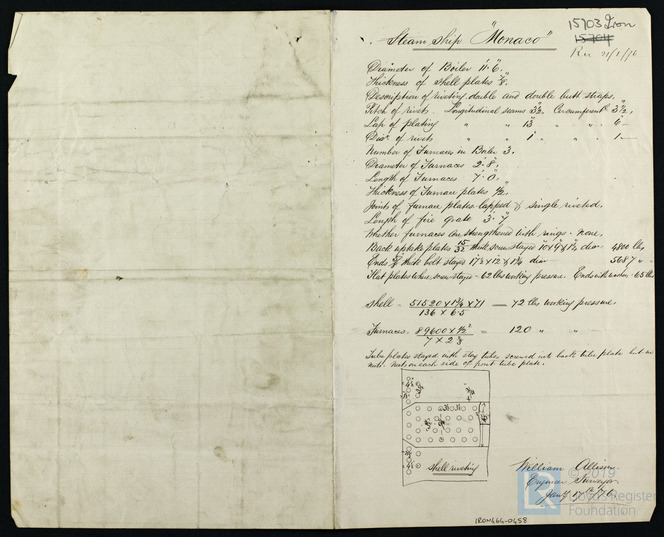 15703 Iron
15704
Rec 21/1/76
Steam Ship "Monaco"
Diameter of Boiler 11'. 6".
Thickness of shell plates 7/8".
Description of riveting double and double butt straps.
Pitch of rivets Longitudinal seams 3 Circumferentl 3 1/2",
Lap of plating " " 13 " " 6
Diar of rivets " " 1 " " 1
Number of Furnaces in Boiler 3.
Diameter of Furnaces 2'. 8".
Length of Furnaces 7'. 0".
Thickness of Furnace plates 1/2",
Joints of furnace plates lapped & single riveted.
Length of fire grate 3'. 7"
Whether furnaces are strengthened with rings - none.
Back uptake plates 15/32 thick screw stayed dia 4800 lbs
Ends thick bolt stayed dia 5687 "
Flat plates where screw stayed - 62 lbs working pressure. Ends with washers - 65 lbs
Shell = 51520 x 1 3/4 x 71 = 72 lbs working pressure.
136 x 6.5
Furnaces = 89600 x 1/2² = 120 " "
7 x 2 2/3
Tube plates stayed with stay tubes screwed into back tube plate but no
nuts. Nuts on each side of front tube plate.
Shell riveting
William Allison
Engineer Surveyor
Jany 17th /76
© 2019
Lloyd's Register
Foundation
IRON466-0458